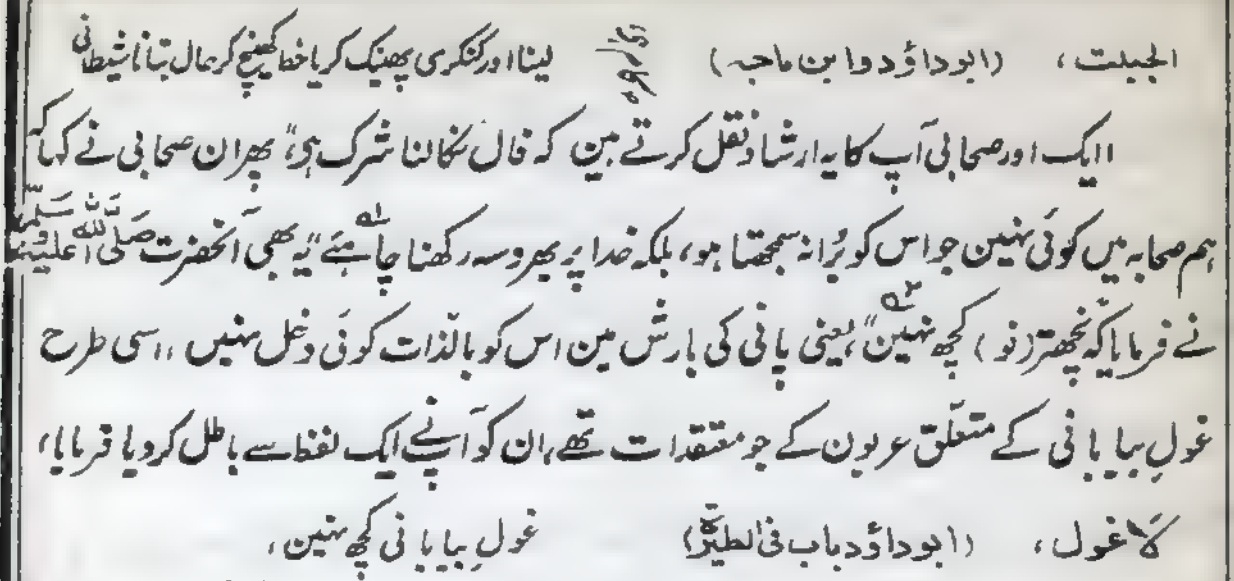 الجبلت، (ابوداؤد و ابن ماجہ) لینا اور کنکری پھینک کر یا خط کھینچ کر حال بتانا شیطانی
ایک اور صحابی آپ کا یہ ارشاد نقل کرتے ہین کہ فال نکالنا شرک ہی،" پھر ان صحابی نے کہا کہ
ہم صحابہ میں کوئی نہین جو اس کو بُرا نہ سمجھتا ہو، بلکہ خدا پر بھروسہ رکھنا چاہئے" یہ بھی آنحضرت صَلَّی اللہ عَلیہِ وَسَلَّم
نے فرمایا کہ نچھتر (نو) کچھ نہین"، یعنی پانی کی بارش مین اس کو بالذات کوئی دخل نہیں، اسی طرح
غولِ بیابانی کے متعلّق عربون کے جو معتقدات تھے، ان کو آپنے ایک لفظ سے باطل کر دیا فرمایا،
لَا غول، (ابوداؤد باب فی الطیرۃ) غولِ بیابانی کچھ نہین،